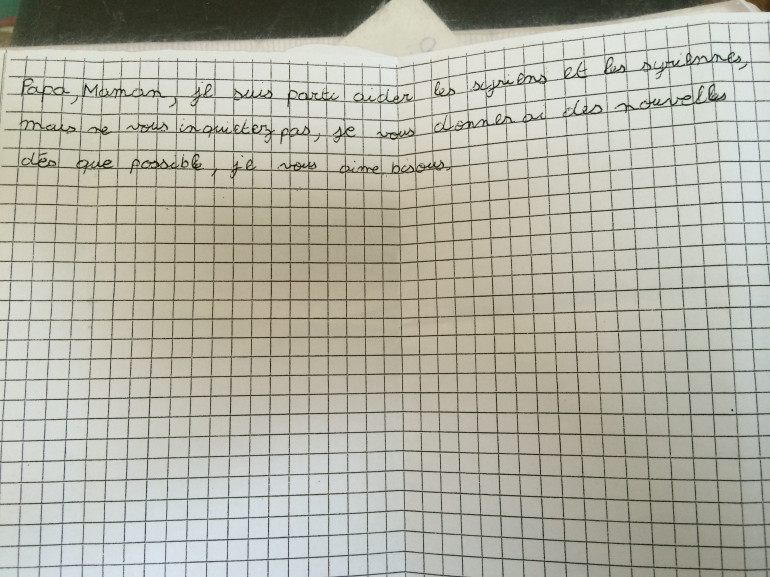 Papa, Maman, je suis parti aider les syriens et les syriennes,
mais ne vous inquietez pas, je vous donnerai des nouvelles
dés que possible, je vous aime bisous.